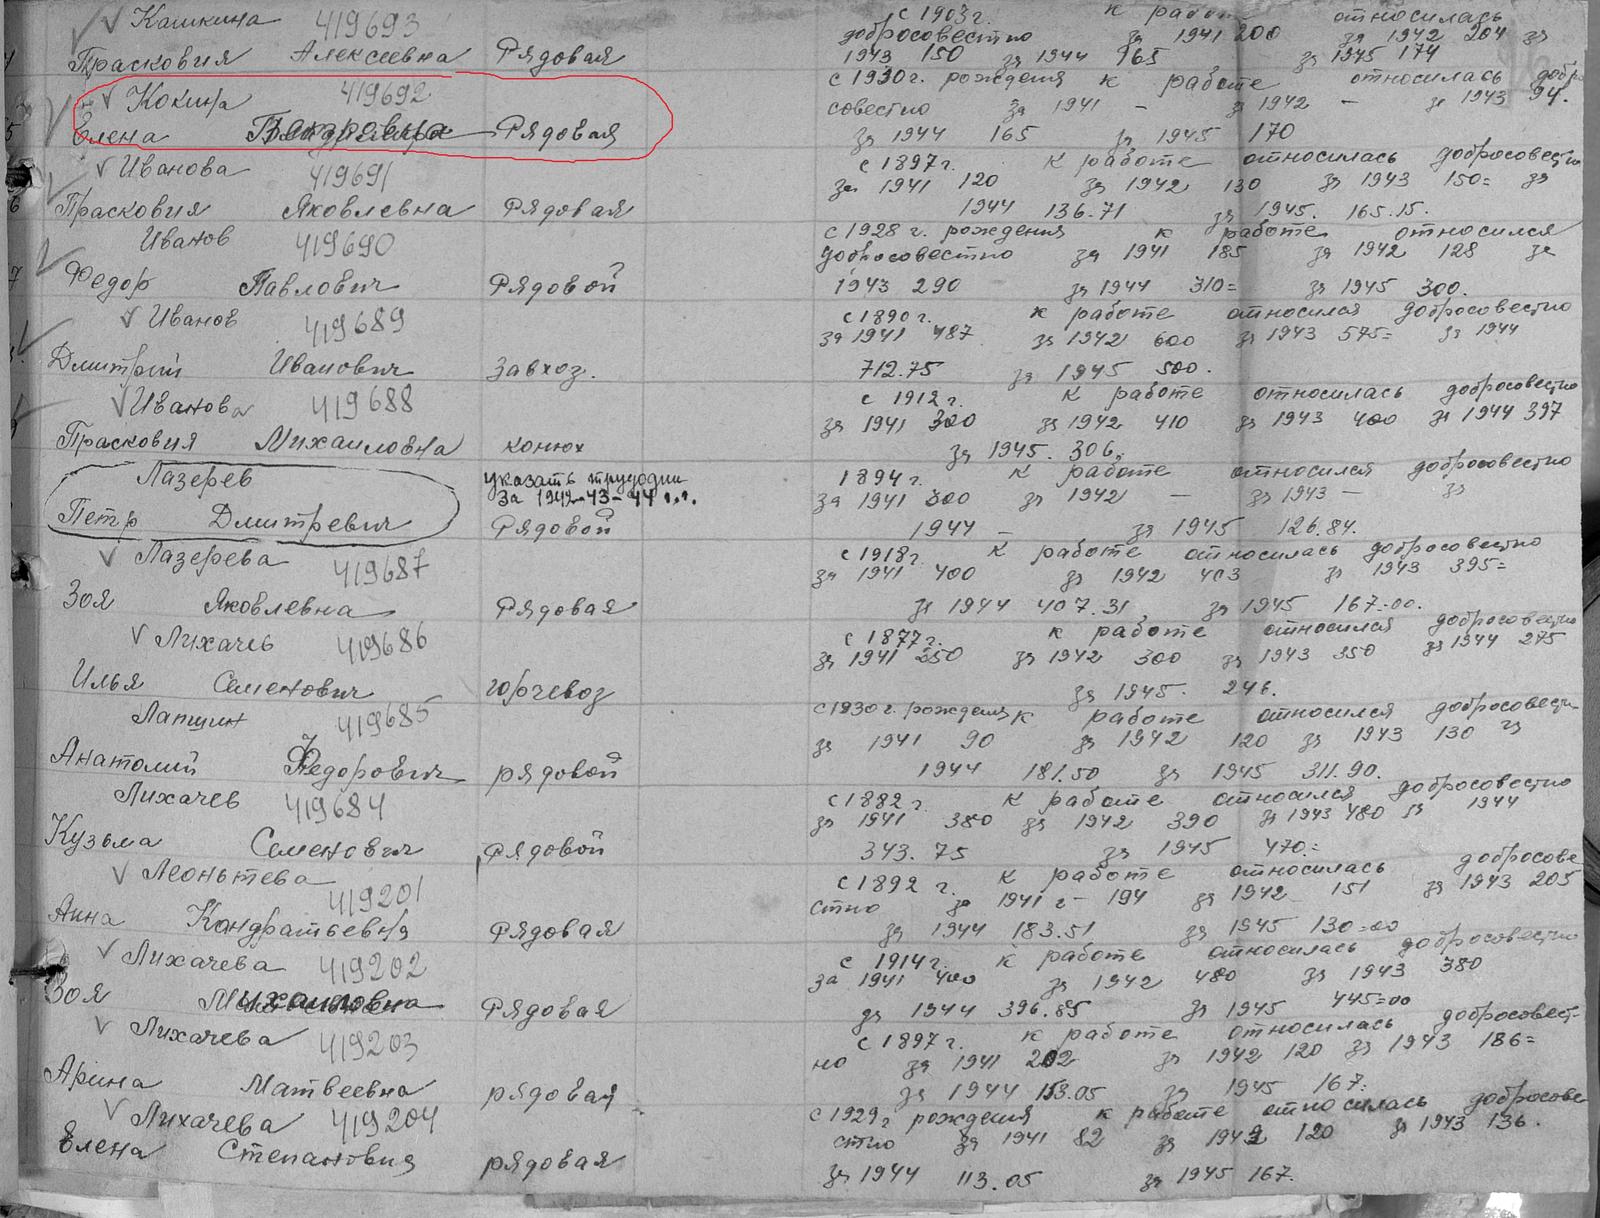 Кашкина 419693
Прасковия Алексеевна Рядовая
с 1903 г. к работе относилась
добросовестно за 1941 200 за 1942 204 за
1943 150 за 1944 165 за 1945 174
Кокина 419692
Елена Рядовая
с 1930 г. рождения к работе относилась добро
совестно за 1941 – за 1942 – за 1943 94.
за 1944 165 за 1945 170
Иванова 419691
Прасковия Яковлевна Рядовая
с 1897 г. к работе относилась добросовестно
за 1941 120 за 1942 130 за 1943 150= за
1944 136.71 за 1945. 165.15.
Иванов 419690
Федор Павлович Рядовой
с 1928 г. рождения к работе относился
добросовестно за 1941 185 за 1942 128 за
1943 290 за 1944 310= за 1945 300.
Иванов 419689
Дмитрий Иванович Завхоз.
с 1890 г. к работе относился добросовестно
за 1941 487 за 1942 600 за 1943 575= за 1944
712.75 за 1945 500.
Иванова 419688
Прасковия Михаиловна конюх
с 1912 г. к работе относилась добросовестно
за 1941 300 за 1942 410 за 1943 400 за 1944 397
за 1945. 306.
Лазерев указать трудодни
за 1942-43-44 г.г.
Петр Дмитревич Рядовой
1894 г. к работе относился добросовестно
за 1941 300 за 1942 – за 1943 – за
1944 – за 1945 126.84.
Лазерева 419687
Зоя Яковлевна Рядовая
с 1918 г. к работе относилась добросовестно
за 1941 400 за 1942 403 за 1943 395=
за 1944 407.31 за 1945 167=00.
Лихачев 419686
Илья Семенович горчевоз
с 1877 г. к работе относился добросовестно
за 1941 250 за 1942 300 за 1943 350 за 1944 275
за 1945. 246.
Лапшин 419685
Анатолий Федорович рядовой
с 1930 г. рождения к работе относился добросовестн
за 1941 90 за 1942 120 за 1943 130 за
1944 181.50 за 1945 311.90.
Лихачев 419684
Кузьма Семенович Рядовой
с 1882 г. к работе относился добросовестно
за 1941 380 за 1942 390 за 1943 480 за 1944
343.75 за 1945 470=
Леоньтева 419201
Анна Кондратьевна Рядовая
с 1892 г. к работе относилась добросове
стно за 1941 г – 194 за 1942 151 за 1943 205
за 1944 183.51 за 1945 130=00
Лихачева 419202
Зоя Михаиловна Рядовая
с 1914 г. к работе относилась добросовестно
за 1941 400 за 1942 480 за 1943 380
за 1944 396.85 за 1945 445=00
Лихачева 419203
Арина Матвеевна рядовая
с 1897 г. к работе относилась добросовест-
но за 1941 202 за 1942 120 за 1943 186=
за 1944 153.05 за 1945 167=
Лихачева 419204
Елена Степановия рядовая
с 1929 г рождения к работе относилась добросове
стно за 1941 82 за 1942 120 за 1943 136.
за 1944 113.05 за 1945 167.